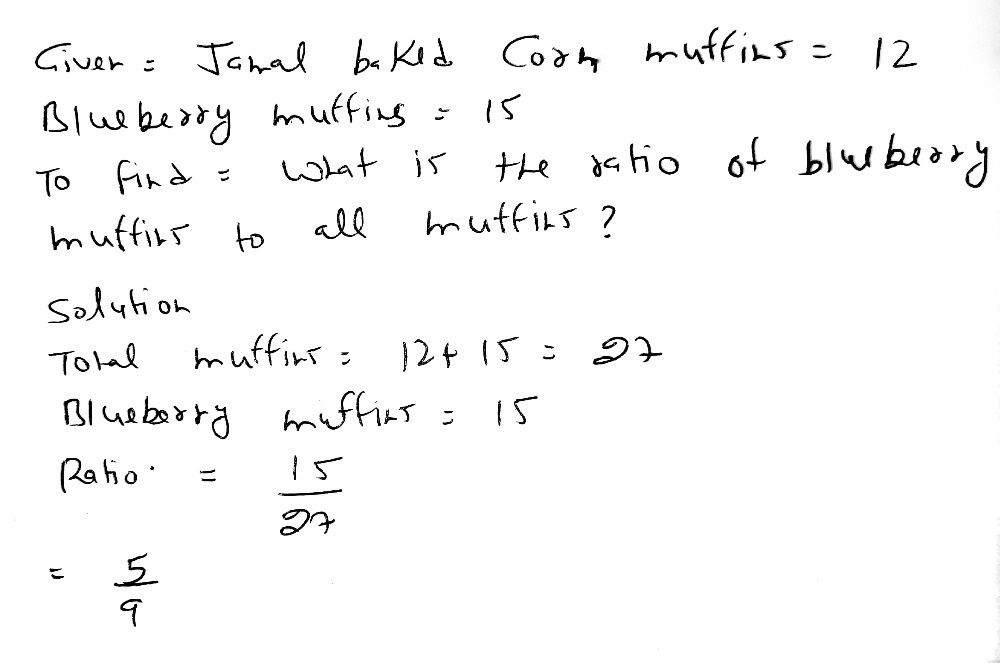 Given = Jamal baked Corn muffins = 12
Blueberry muffins = 15
To find = What is the ratio of blueberry
muffins to all muffins ?
Solution
Total muffins = 12+ 15 = 27
Blueberry muffins = 15
Ratio = 15/27
= 5/9